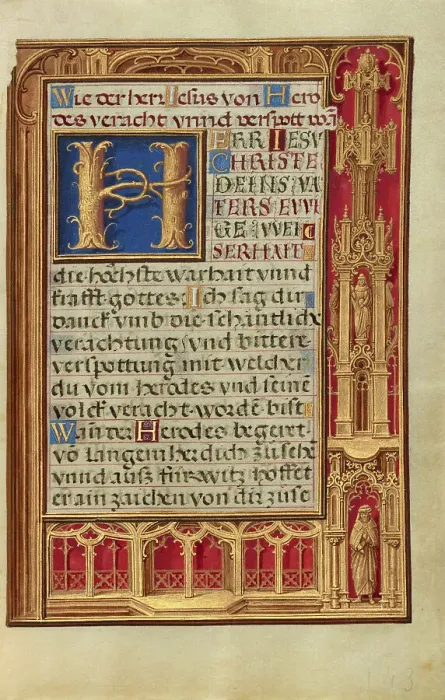 Wie der herr Jesus von Hero
des veracht vnnd verspott wā
HERR IESV
CHRISTE
DEINS VA
TERS EWI
GE WEIS
SERHAIT
die höchste warhait vnnd
krafft gottes· Ich sag dir
danck vmb die schäntliche
verachtung vnd bittere
verspottung mit welcher
du vom herodes vnd seinē
volck veracht wordē bist
Wañ der Herodes begeret
vō langem her dich zůsehē
vnnd ausz fürwitz hoffet
er ain zaichen von dir zůse